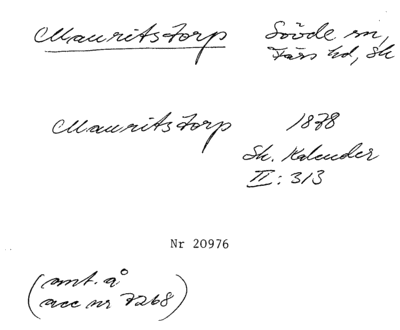 Mauritstorp Sövde sn,
Färs hd, Sk
Mauritstorp 1878
Sk. Kalender
II: 313
Nr 20976
(ant. å
acc nr 7268)